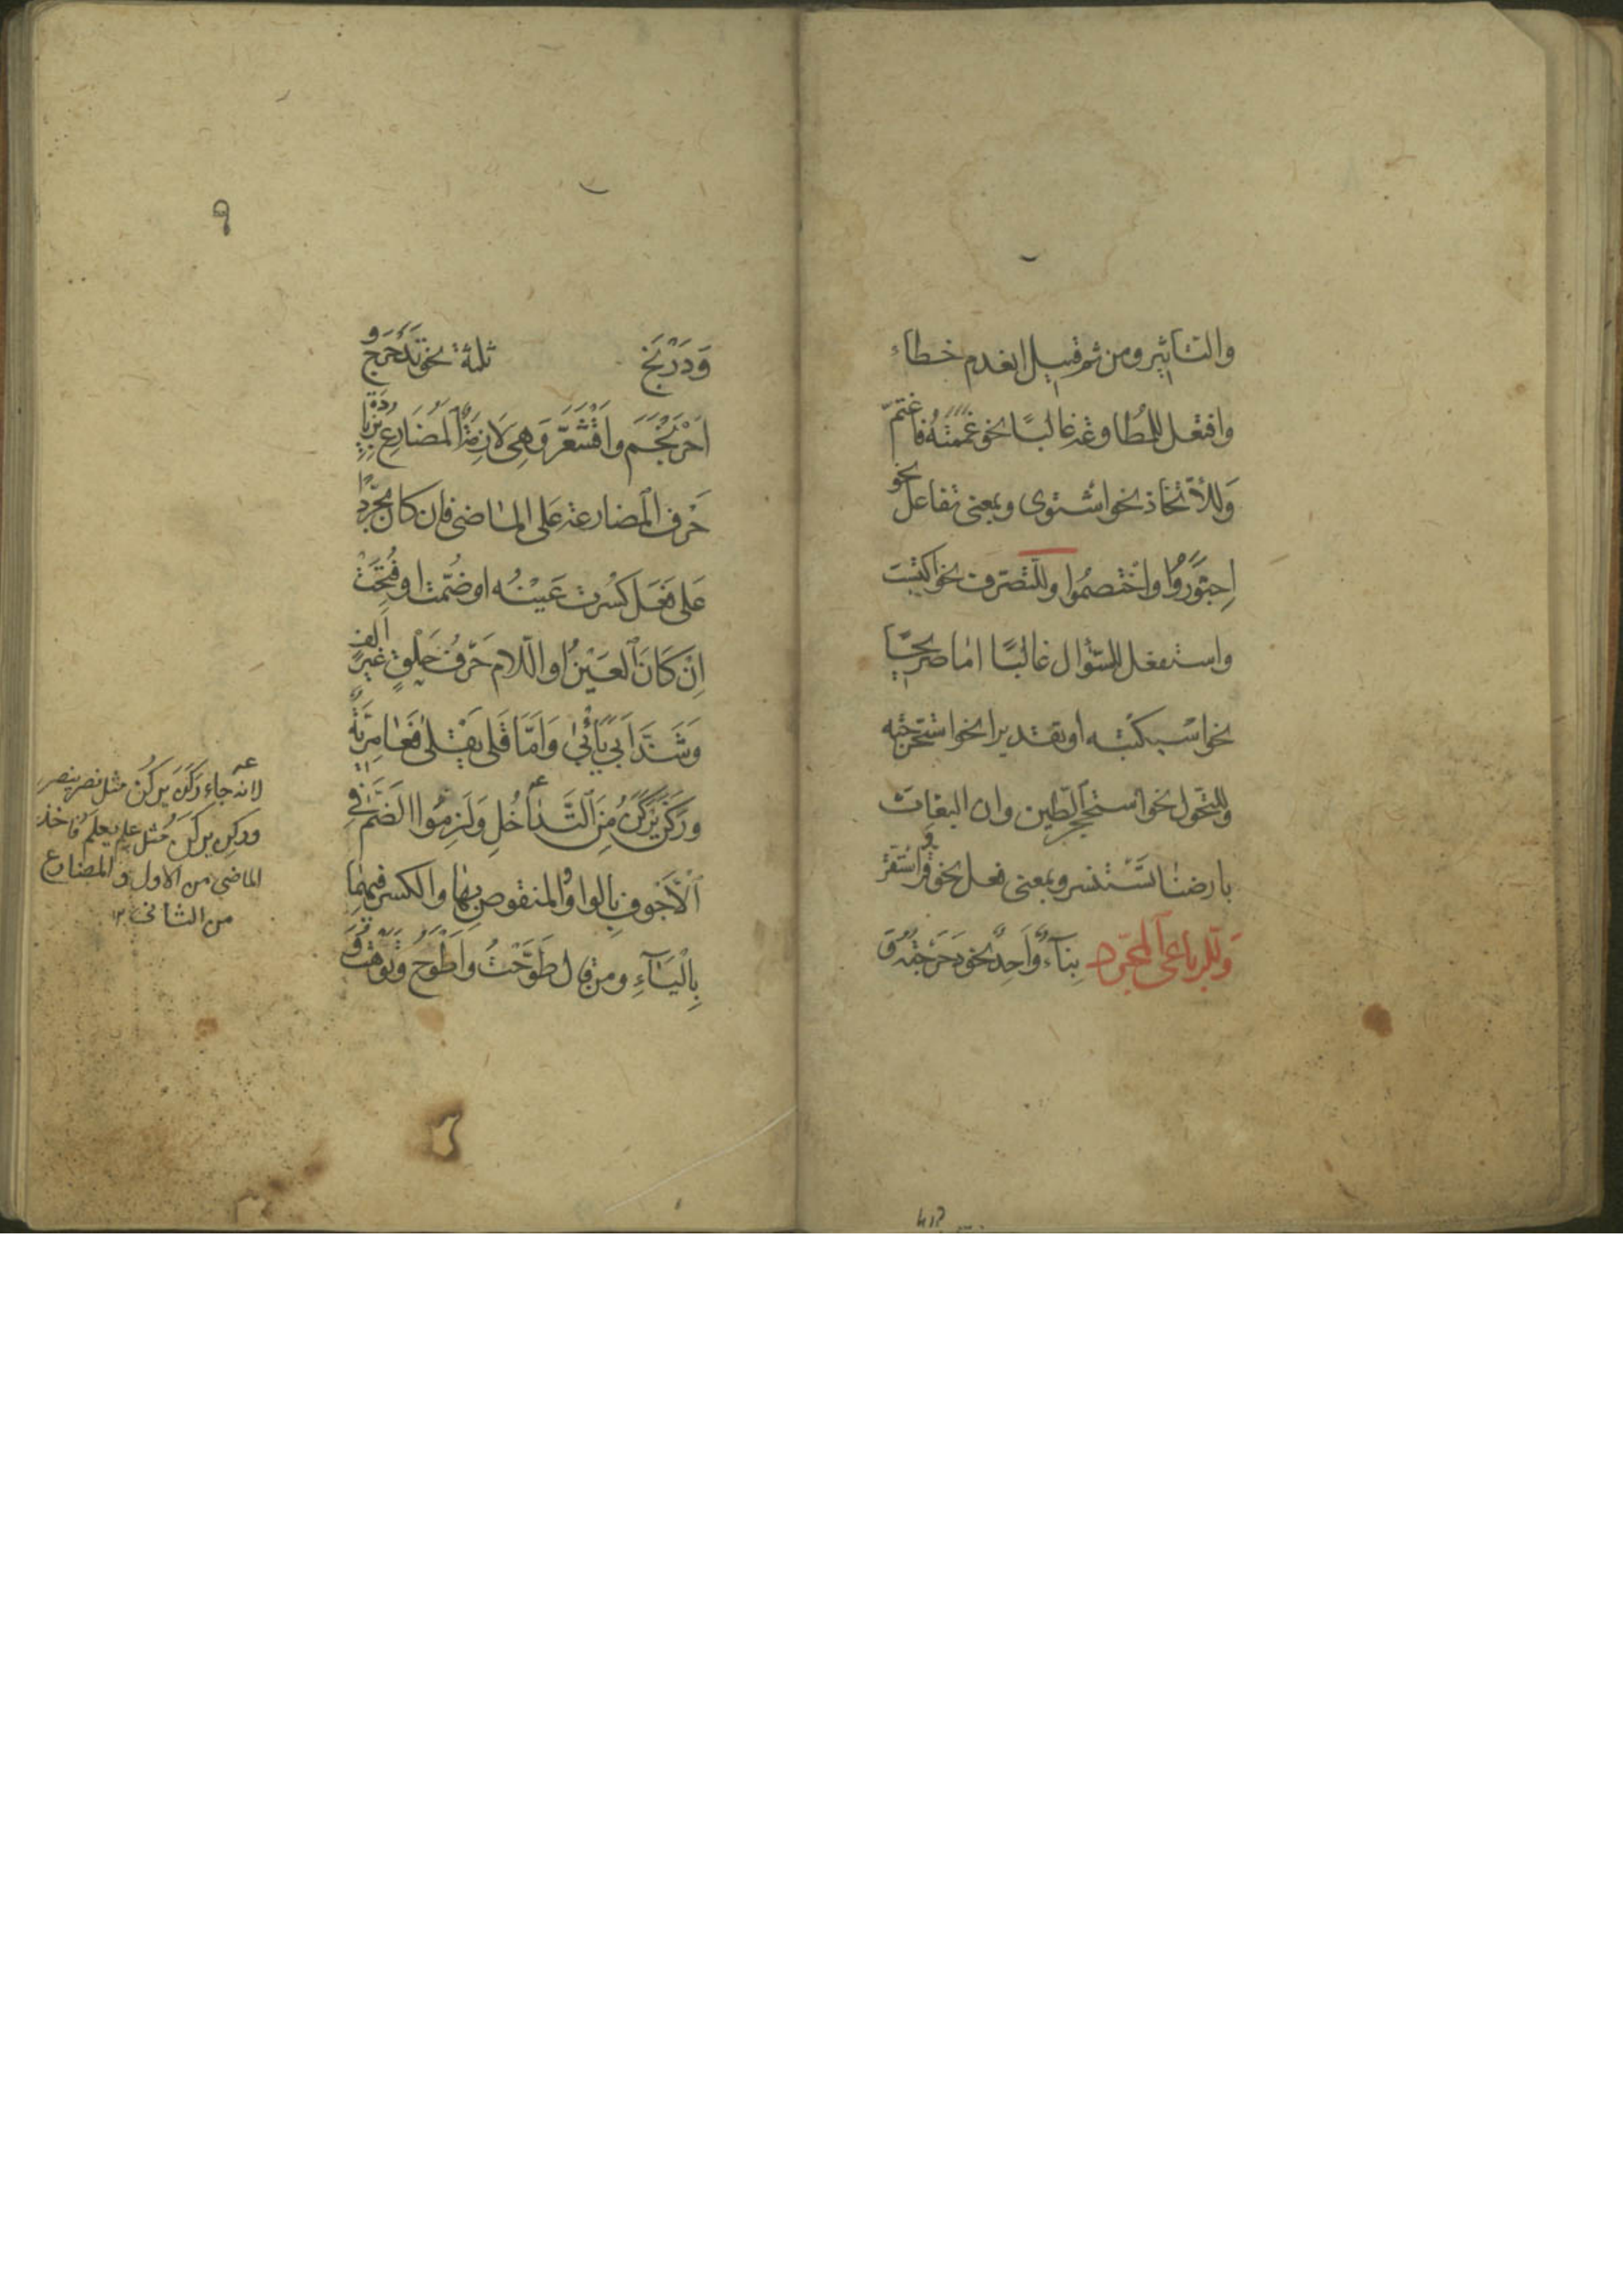 والتاثير ومن ثم قيل انعدم خطاء
وافتعل للمطاوعة غالبًا نحو غَمَمْتُهُ فاغتمّ
وَللاتّخاذ نحو اشتوى وبمعنى تفاعل نحو
اِجتَوَرُوا واخْتصمُوا وللتصرّف نحو اكتسب
واستفعل للسّؤال غالبًا امّا صريحًا
نحو استكتبته او تقديرا نحو استخرجته
وللتحوّل نحو استحجر الطّين وان البغاث
بارضنا تستنسر وبمعنى فعل نحو قرّ واستقرّ
وَللرباعى المجرّد بِنَآءٌ وَاحِدٌ نحو دَحْرَجْتُهُ
وَدَرْبَخَ ثلثة نحو تَدَحْرَجَ و
اِحْرَنْجَمَ وَاقْشَعَرَّ وَهِىَ لَازِمَةٌ اَلمُضَارِعُ بِزِيَادَةِ
حَرْف المضارعة عَلى الماضى فاِن كان مجرّدًا
عَلى فَعَلَ كُسِرت عَيْنُه او ضُمّت او فُتِحَتْ
اِنْ كَانَ العَيْنُ او اللّام حَرْفَ حَلْقٍ غَيْرَ اَلِفٍ
وَشَذَّ اَبى يَأْبىٰ وَاَمَّا قَلى يَقْلىٰ فعَامِرِيَّةٌ
ورَكَنَ يَرْكَنُ مِنَ التَّدَاخُلِ وَلَزِمُوا الضَّمَّ فِى
اَلْاَجْوَفِ بِالواو والمنقوصِ بِهَا والكسر فيهما
بِالْيَآءِ ومن قال طَوَّحْتُ وَاَطْوَحُ وتَوَّهْتُ
عه
لانه جاء رَكَنَ يَرْكُنُ مثل نصر ينصر
وركِن يركَن مثل علم يعلم فاخذ
الماضى من الاول والمضارع
من الثانى ١٢